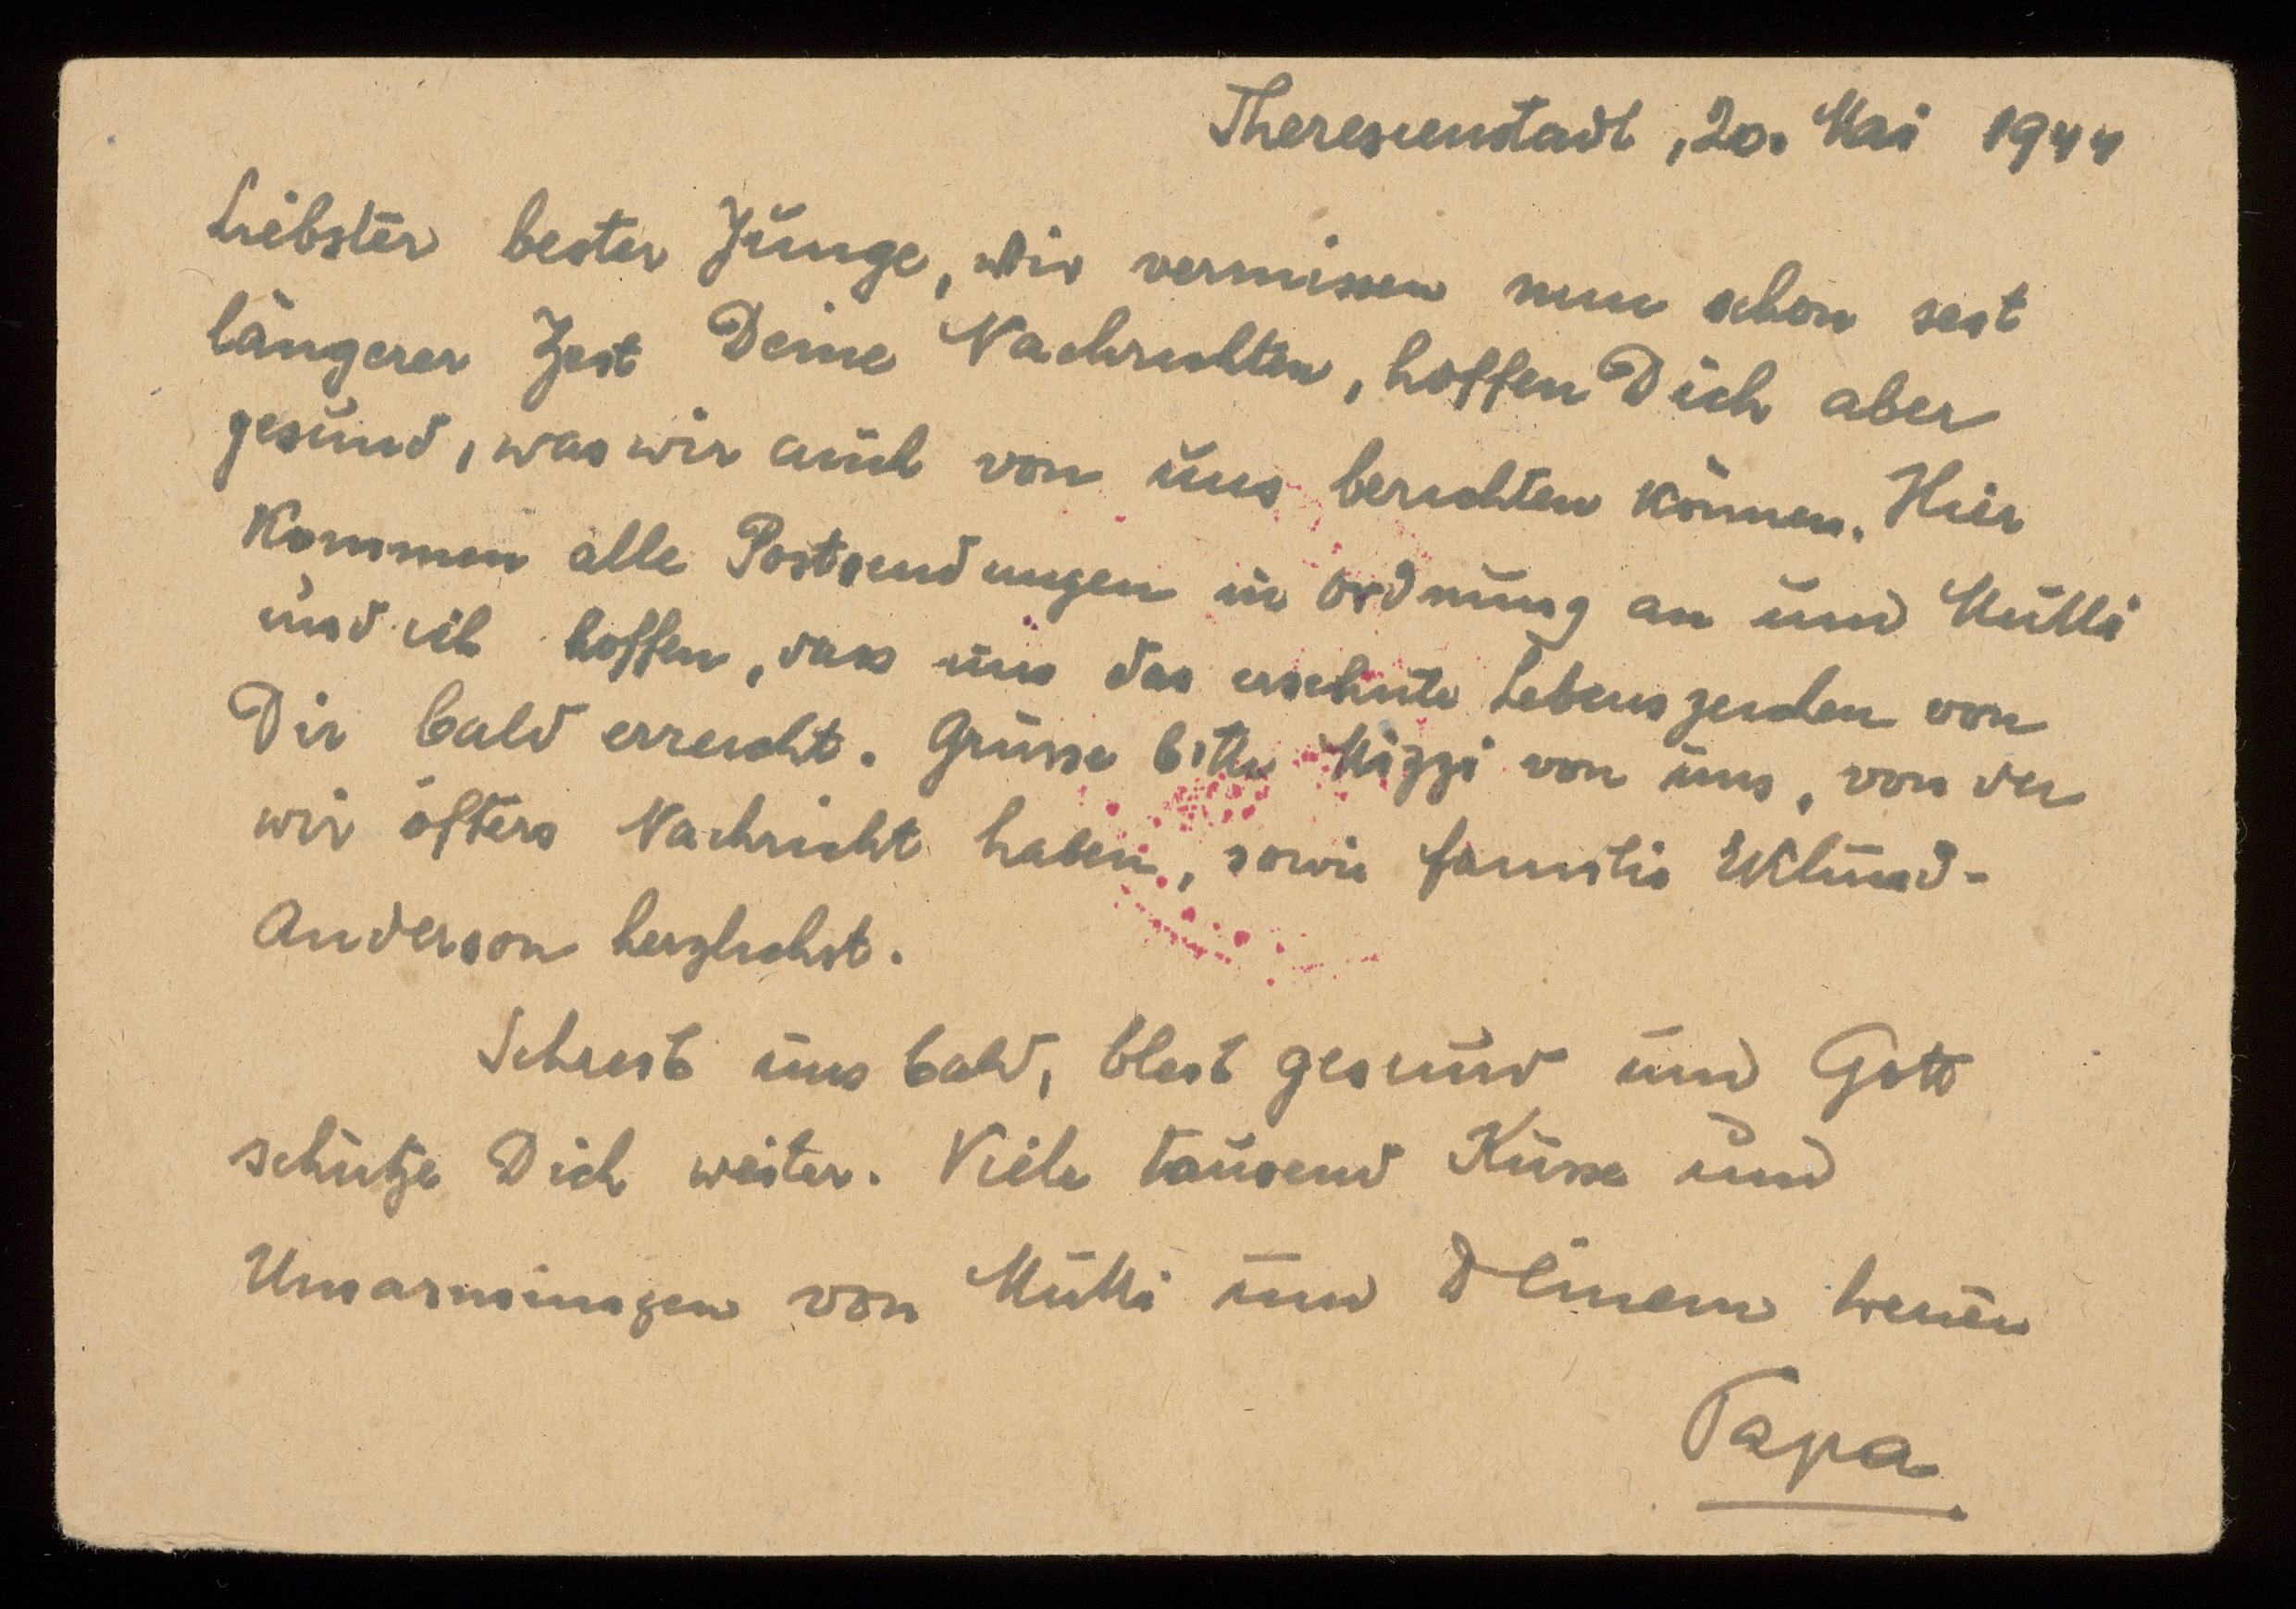 Theresienstadt, 20. Mai 1944
Liebster bester Junge, wir vermissen nun schon seit
längerer Zeit Deine Nachrichten, hoffen Dich aber
gesund, was wir auch von uns berichten können. Hier
kommen alle Postsendungen in Ordnung an und Mutti
und ich hoffen, dass uns das ersehnte Lebenszeichen von
Dir bald erreicht. Grüsse bitte Mizzi von uns, von der
wir öfters Nachricht haben, sowie Familie Eklund-
Anderson herzlichst.
Schreib uns bald, bleib gesund und Gott
schütze Dich weiter. Viele tausend Küsse und
Umarmungen von Mutti und Deinem treuen
Papa